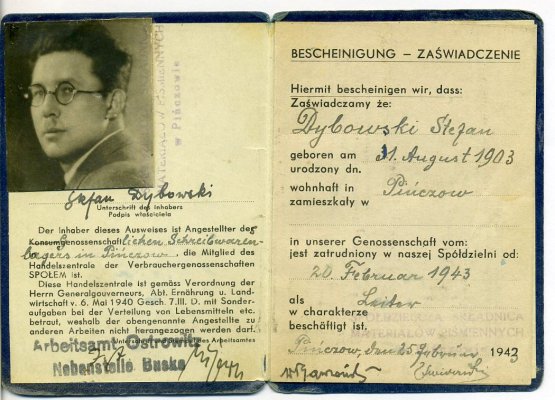 MATERIAŁÓW PIŚMIENNYCH
w Pińczowie
Stefan Dybowski
Unterschrift des Inhabers
Podpis właściciela
Der Inhaber dieses Ausweises ist Angestellter der
Konsumgenossenschaftlichen Schreibwaren-
lagers in Pińczow, die Mitglied des
Handelszentrale der Verbrauchergenossenschaften
SPOŁEM ist.
Diese Handelszentrale ist gemäss Verordnung der
Herrn Generalgouverneurs, Abt. Ernährung u. Land-
wirtschaft v. 6. Mai 1940 Gesch. 7.III. D. mit Sonder-
aufgaben bei der Verteilung von Lebensmitteln etc.
betraut, weshalb der obengenannte Angestellte zu
anderen Arbeiten nicht herangezogen werden darf.
Unterschrift und Stempel des Arbeitsamtes
Arbeitsamt Ostrowitz
Nebenstelle Buska
BESCHEINIGUNG – ZAŚWIADCZENIE
Hiermit bescheinigen wir, dass:
Zaświadczamy że:
Dybowski Stefan
geboren am 31. August 1903
urodzony dn.
wohnhaft in Pińczow
zamieszkały w
in unserer Genossenschaft vom:
jest zatrudniony w naszej Spółdzielni od:
20 Februar 1943
als Leiter
w charakterze
SKŁADNICA
MATERIAŁÓW PIŚMIENNYCH
beschäftigt ist.
Pińczow, den 25 Februar 1943